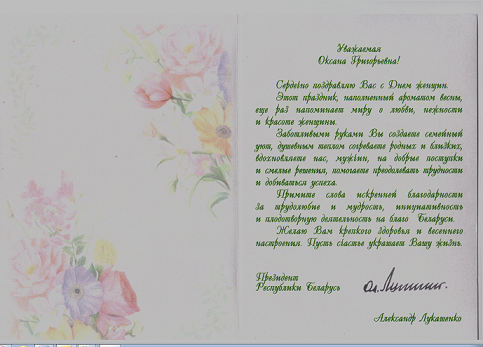 Уважаемая
Оксана Григорьевна!
Сердечно поздравляю Вас с Днем женщин.
Этот праздник, наполненный ароматом весны,
еще раз напоминает миру о любви, нежности
и красоте женщины.
Заботливыми руками Вы создаете семейный
уют, душевным теплом согреваете родных и близких,
вдохновляете нас, мужчин, на добрые поступки
и смелые решения, помогаете преодолевать трудности
и добиваться успеха.
Примите слова искренней благодарности
за трудолюбие и мудрость, инициативность
и плодотворную деятельность на благо Беларуси.
Желаю Вам крепкого здоровья и весеннего
настроения. Пусть счастье украшает Вашу жизнь.
Президент
Республики Беларусь
Александр Лукашенко